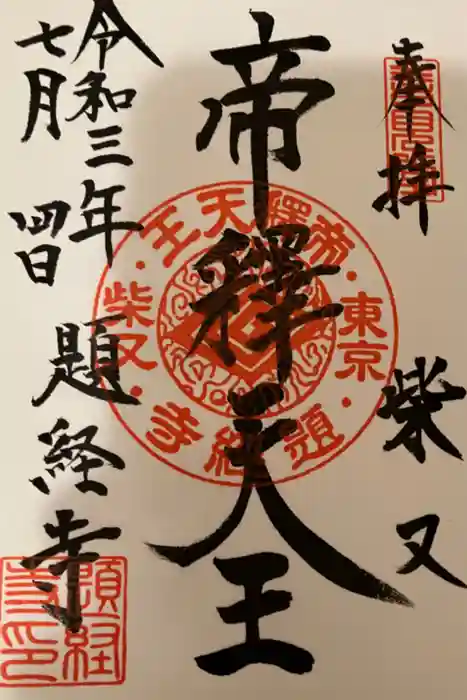 奉拝
柴又
帝釋天王
令和三年
七月四日
題経寺
帝釋天王
東京
柴又
題経寺
題経
寺印